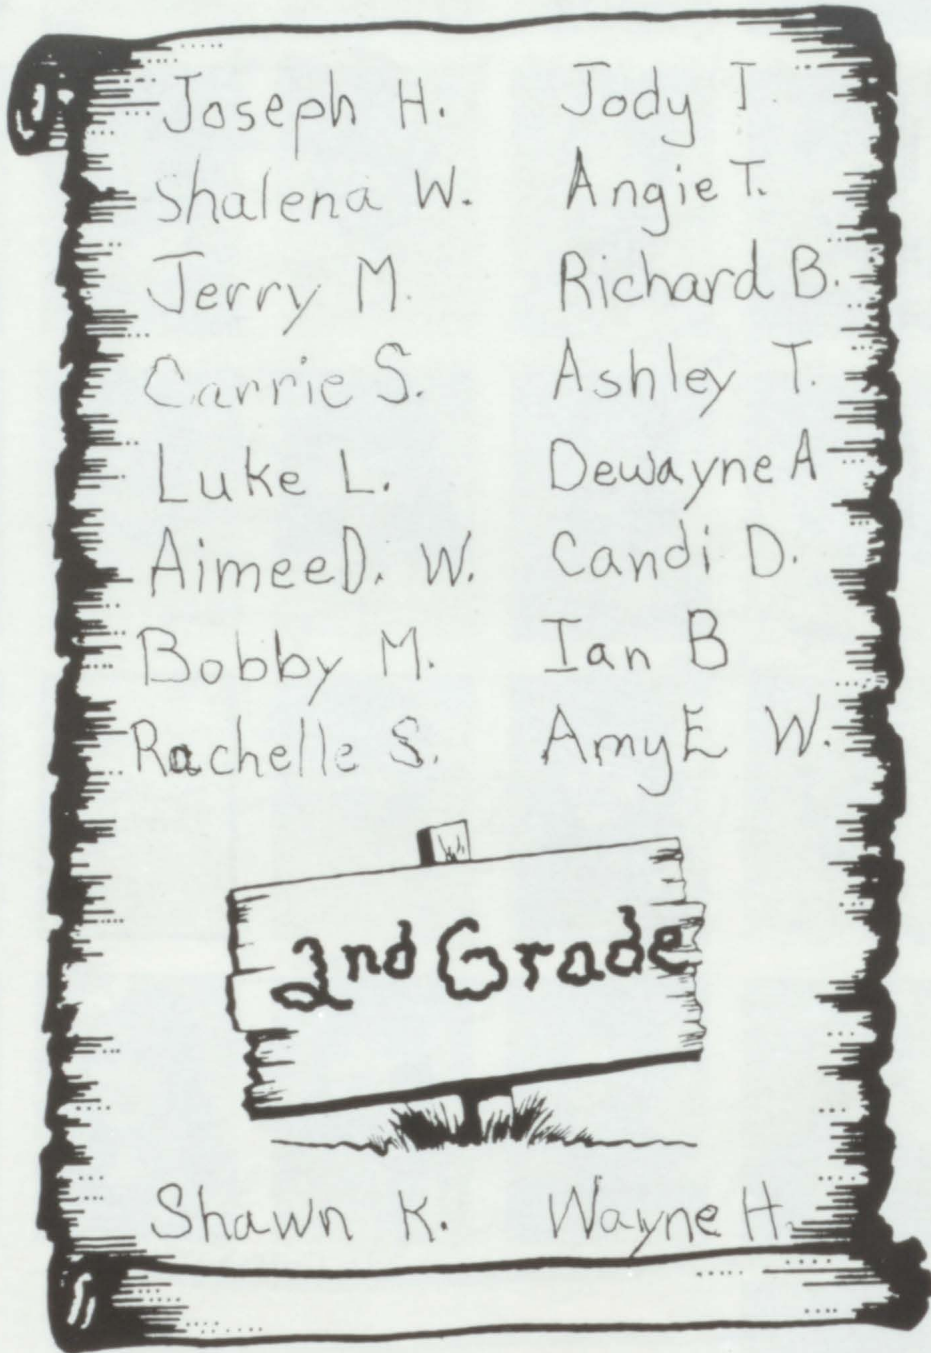 Joseph H.
Shalena W.
Jerry M.
Carrie S.
Luke L.
Aimee D. W.
Bobby M.
Rachelle S.
Jody T
Angie T.
Richard B.
Ashley T.
Dewayne A
Candi D.
Ian B
Amy E W.
2nd Grade
Shawn K.
Wayne H.